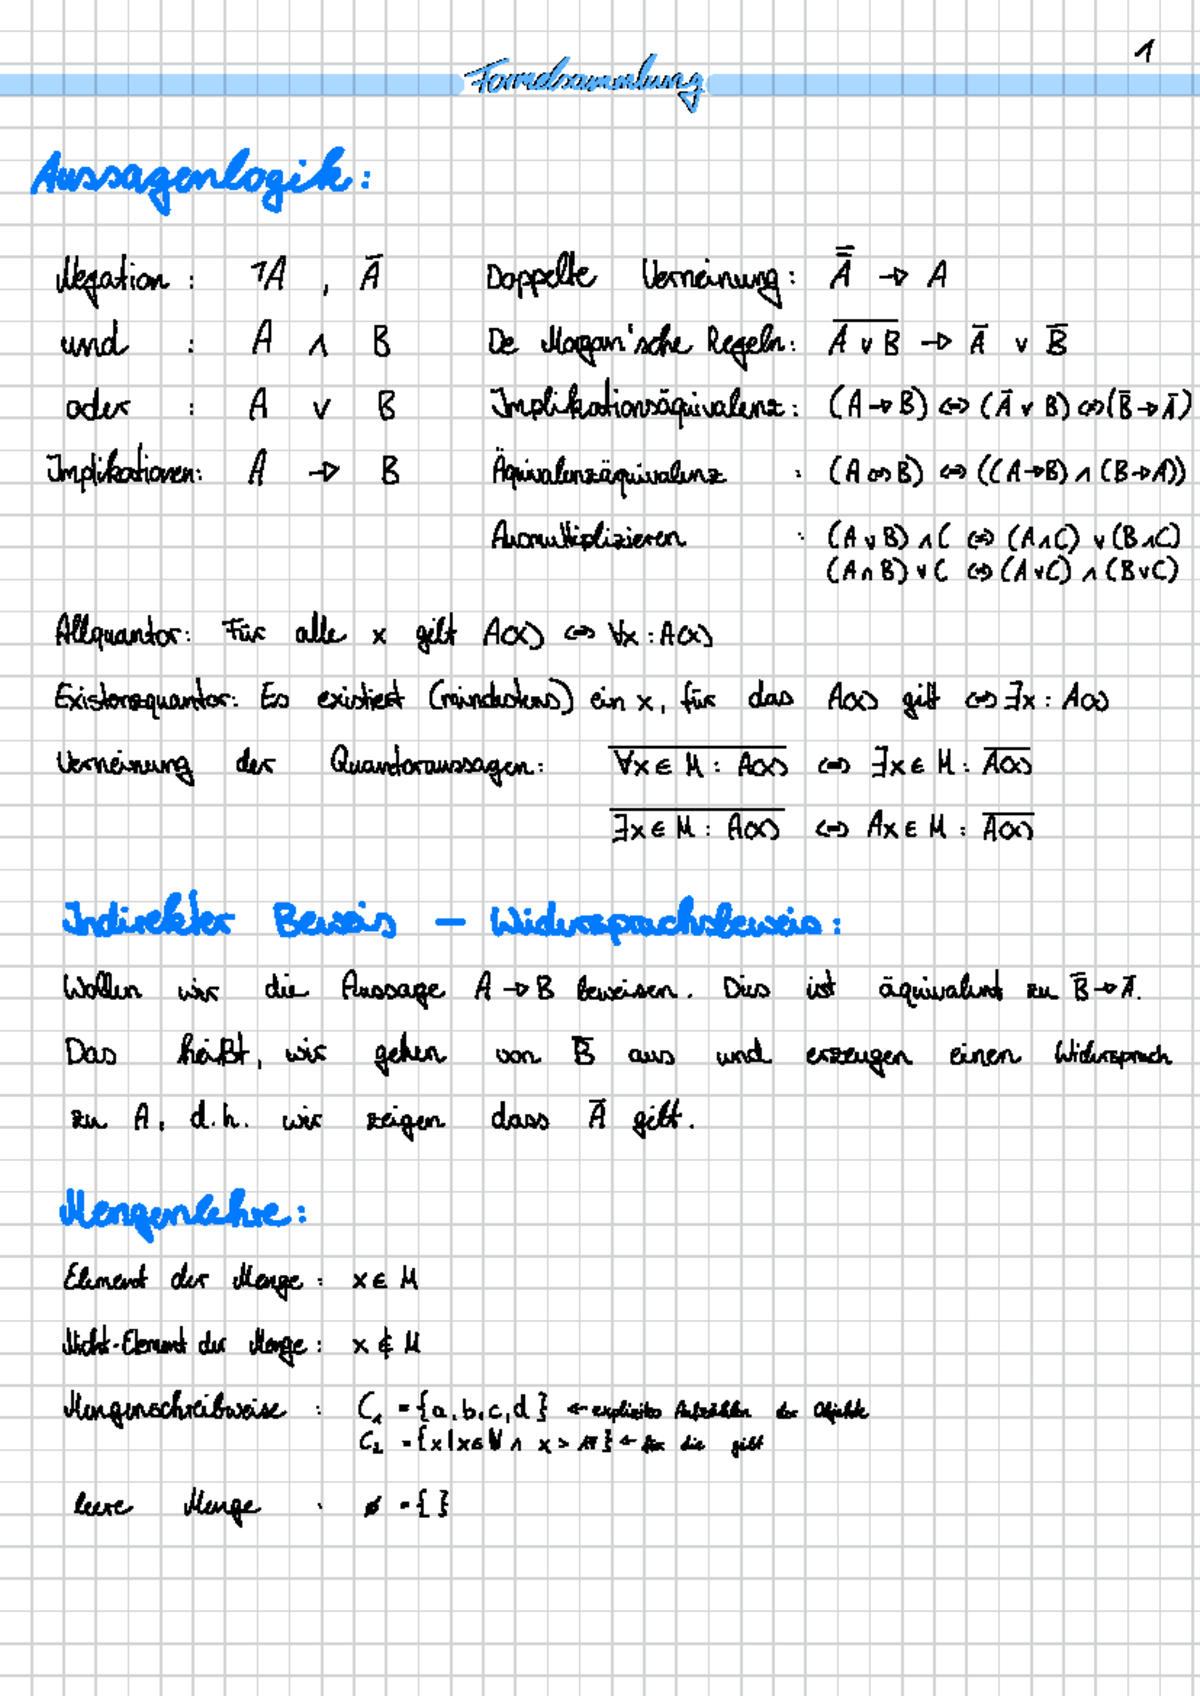 1
Formelsammlung
Aussagenlogik:
Negation : ¬A , A̅ Doppelte Verneinung: A̿ → A
und : A ∧ B De Mogan'sche Regeln: \overline{A ∨ B} → A̅ ∨ B̅
oder : A ∨ B Implikationsäquivalenz: (A→B) ⇔ (A̅ ∨ B) ⇔ (B̅→A̅)
Implikationen: A → B Äquivalenzäquivalenz : (A⇔B) ⇔ ((A→B) ∧ (B→A))
Ausmultiplizieren : (A∨B) ∧ C ⇔ (A∧C) ∨ (B∧C)
(A∧B) ∨ C ⇔ (A∨C) ∧ (B∨C)
Allquantor: Für alle x gilt A(x) ⇔ ∀x : A(x)
Existenzquantor: Es existiert (mindestens) ein x, für das A(x) gilt ⇔ ∃x : A(x)
Verneinung der Quantoraussagen: \overline{∀x ∈ M : A(x)} ⇔ ∃x ∈ M : \overline{A(x)}
\overline{∃x ∈ M : A(x)} ⇔ Ax ∈ M : \overline{A(x)}
Indirekter Beweis – Widerspruchsbeweis:
Wollen wir die Aussage A → B beweisen. Dies ist äquivalent zu B̅→A̅.
Das heißt, wir gehen von B̅ aus und erzeugen einen Widerspruch
zu A, d.h. wir zeigen dass A̅ gilt.
Mengenlehre:
Element der Menge : x ∈ M
Nicht-Element der Menge : x ∉ M
Mengenschreibweise : C₁ = {a,b,c,d} ← explizites Aufzählen der Objekte
C₂ = {x | x ∈ ℕ ∧ x > } ← für die gilt
leere Menge : ∅ = { }